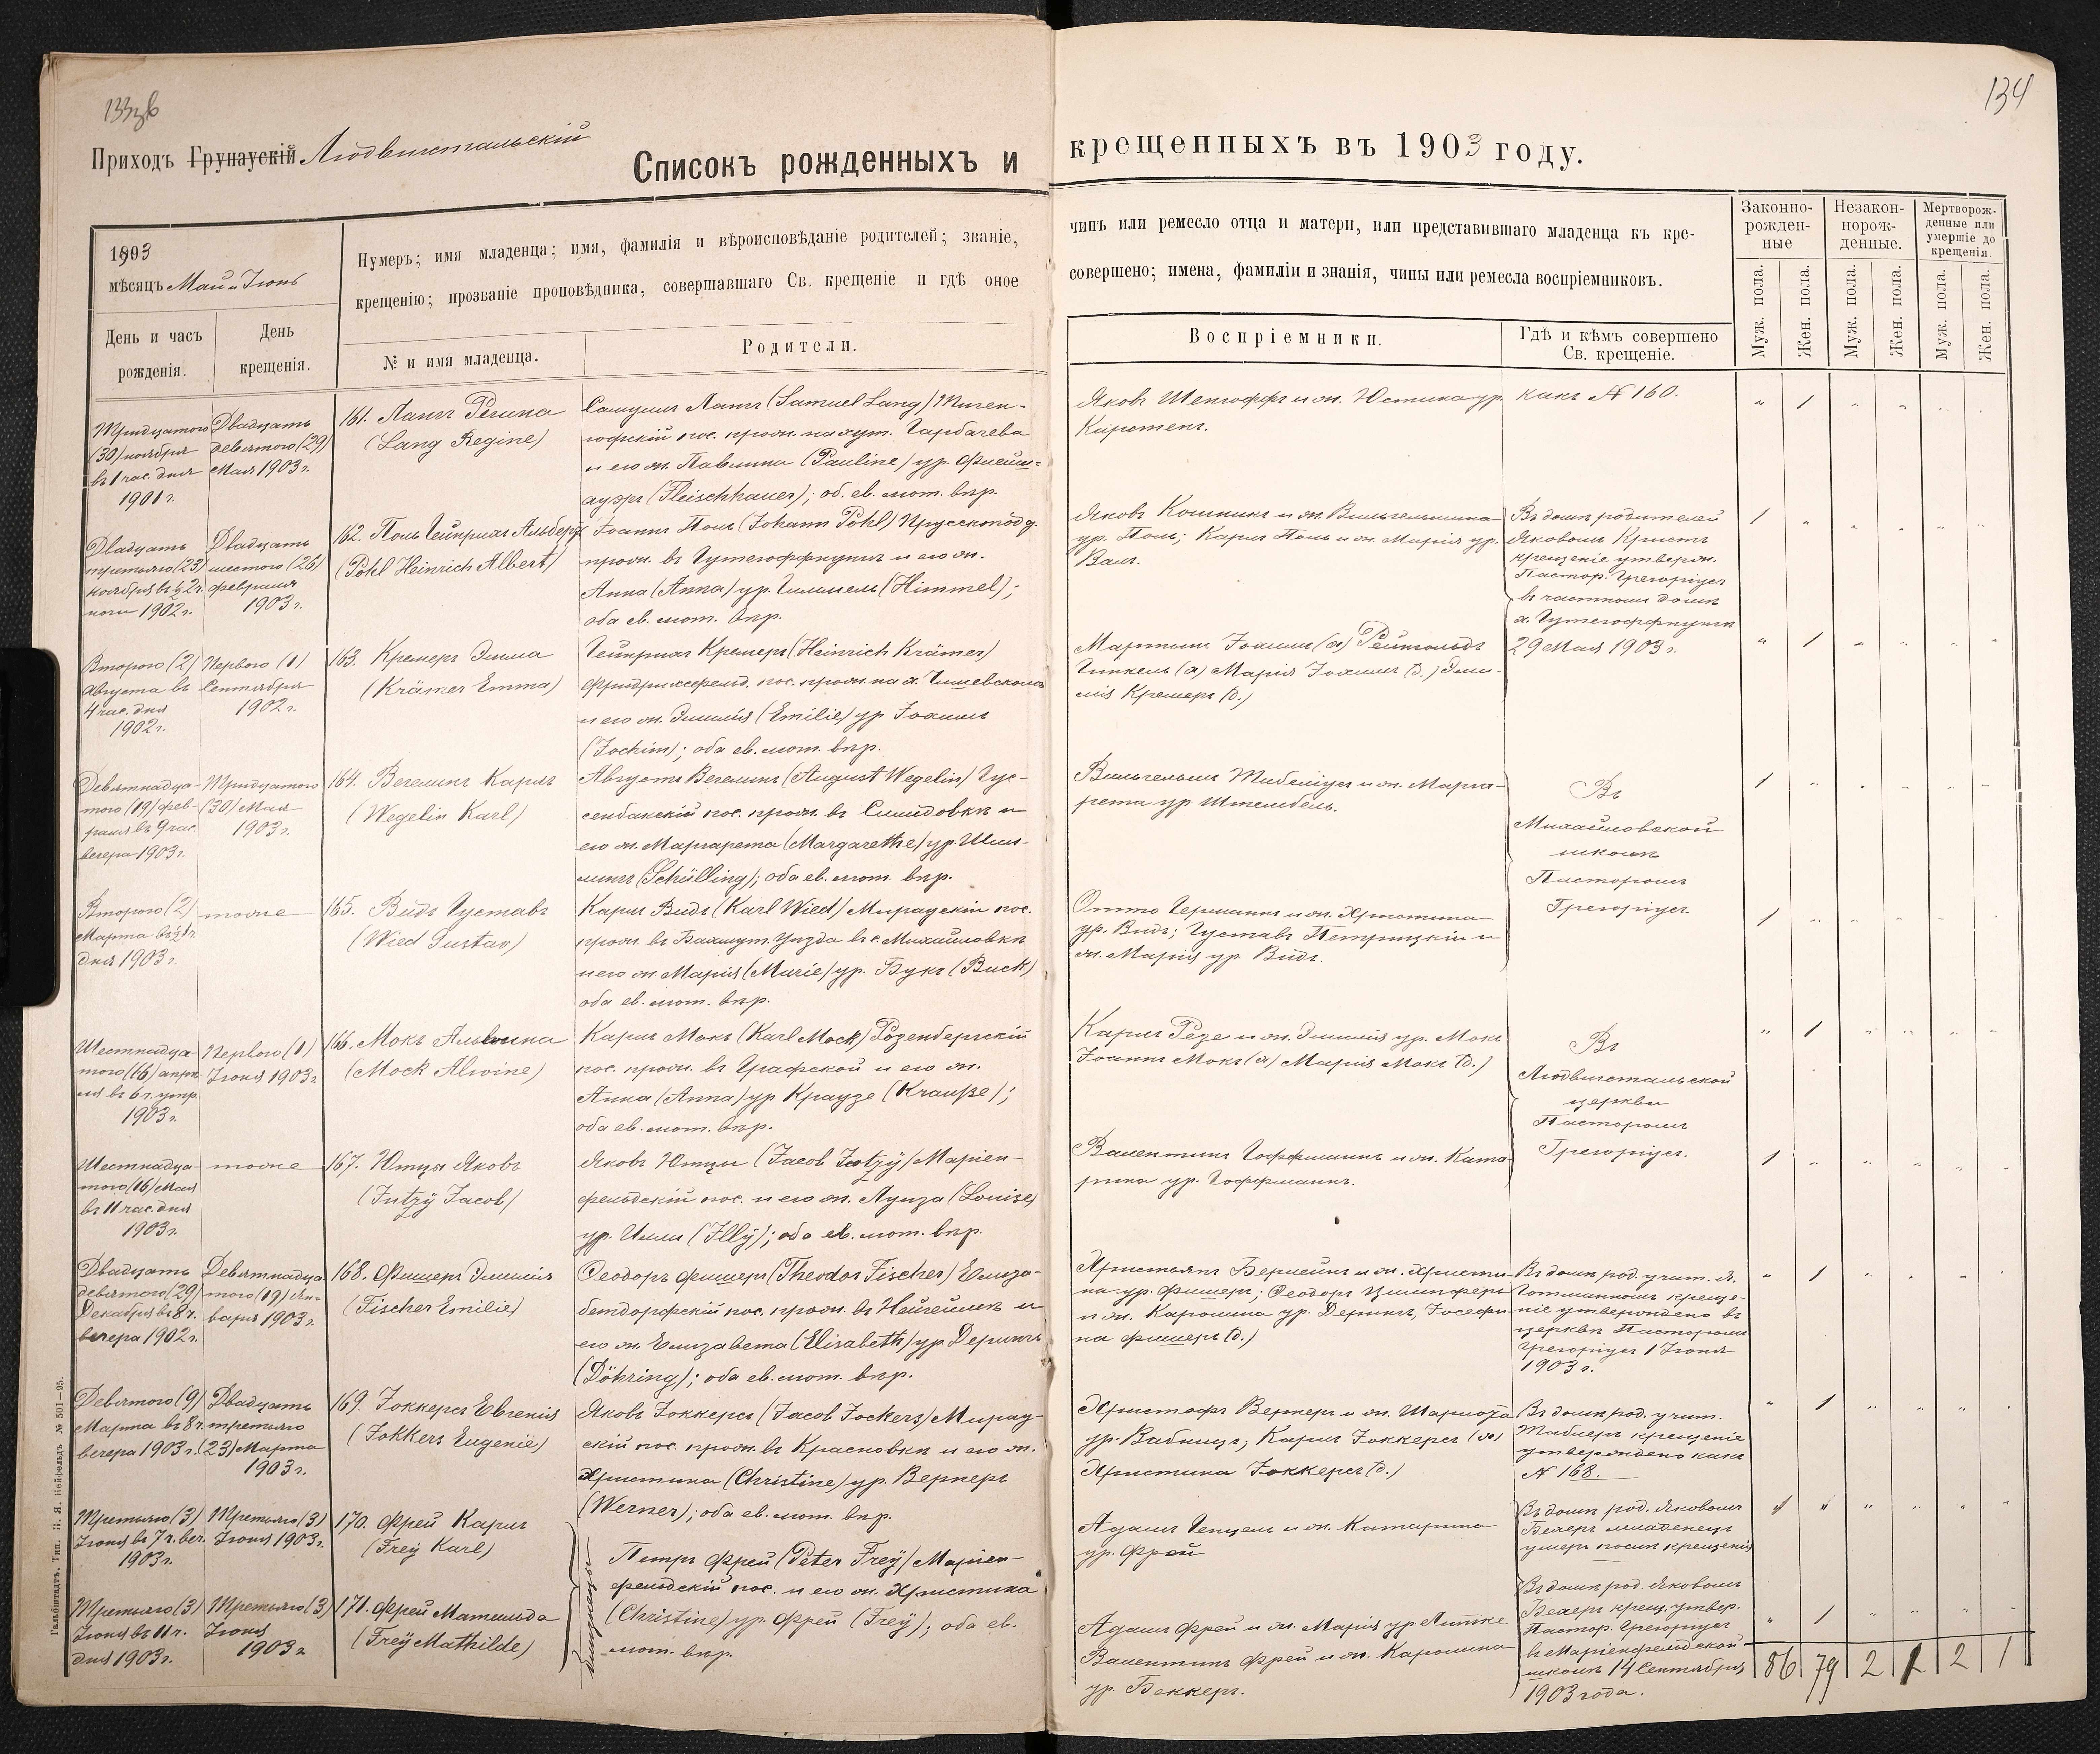 133об
134
Приходъ Грунаускій Людвигстальскій
Списокъ рожденныхъ и крещенныхъ въ 1903 году.
1903
мѣсяцъ Май и Іюнь
День и часъ рожденія.
День крещенія.
Нумеръ; имя младенца; имя, фамилія и вѣроисповѣданіе родителей; званіе,
крещенію; прозваніе проповѣдника, совершавшаго Св. крещеніе и гдѣ оное
№ и имя младенца.
Родители.
чинъ или ремесло отца и матери, или представившаго младенца къ кре-
совершено; имена, фамиліи и знанія, чины или ремесла воспріемниковъ.
Воспріемники.
Гдѣ и кѣмъ совершено
Св. крещеніе.
Законно-
рожден-
ные
Незакон-
норож-
денные.
Мертворож-
денные или
умершіе до
крещенія.
Муж. пола.
Жен. пола.
Муж. пола.
Жен. пола.
Муж. пола.
Жен. пола.
Тридцатого
(30) ноября
въ 1 час. дня
1901 г.
Двадцать
девятого (29)
Мая 1903 г.
161. Лангъ Регина
(Lang Regine)
Самуилъ Лангъ (Samuel Lang) Тиген-
гофскій пос. прож. на хут. Гарбачева
и его ж. Павлина (Pauline) ур. Флейш-
ауэръ (Fleischhauer); об. ев. лют. вѣр.
Яковъ Шенгоффъ и ж. Юстина ур.
Кирстенъ.
какъ № 160.
Двадцать
третьяго (23)
ноября въ ½ 2 ч.
ночи 1902 г.
Двадцать
шестого (26)
февраля
1903 г.
162. Поль Гейнрихъ Альберт
(Pohl Heinrich Albert)
Іоаннъ Поль (Johann Pohl) Прусскоподд.
прож. въ Гутегоффнунгъ и его ж.
Анна (Anna) ур. Гиммель (Himmel);
оба ев. лют. вѣр.
Яковъ Кошникъ и ж. Вильгельмина
ур. Поль; Карлъ Поль и ж. Марія ур.
Валь.
Въ домѣ родителей
Яковомъ Кристъ
крещеніе утвержд.
Пастор. Грегоріусъ
въ частномъ домѣ
х. Гутегоффнунгъ
29 Мая 1903 г.
Второго (2)
Августа въ
4 час. дня
1902 г.
Перваго (1)
Сентября
1902 г.
163. Кремеръ Эмма
(Krämer Emma)
Гейнрихъ Кремеръ (Heinrich Krämer)
Фридрихсфельд. пос. прож. на х. Гишевскомъ
и его ж. Эмилія (Emilie) ур. Іохимъ
(Jochim); оба ев. лют. вѣр.
Мартынъ Іохимъ (х) Рейнгольдъ
Гинкель (х) Марія Іохимъ (д.) Эми-
лія Кремеръ (д.)
Девятнадца-
того (19) фев-
раля въ 9 час.
вечера 1903 г.
Тридцатого
(30) Мая
1903 г.
164. Вегелинъ Карлъ
(Wegelin Karl)
Августъ Вегелинъ (August Wegelin) Гус-
сенбахскій пос. прож. въ Симидовкѣ и
его ж. Маргарета (Margarethe) ур. Шил-
лингъ (Schülling); оба ев. лют. вѣр.
Вильгельмъ Тибеліусъ и ж. Марга-
рета ур. Штембель.
Въ
Михайловской
школѣ
Пасторомъ
Грегоріусъ.
Второго (2)
Марта въ ½ 1 ч.
дня 1903 г.
тоже
165. Видъ Густавъ
(Wied Gustav)
Карлъ Видъ (Karl Wied) Мираускій пос.
прож. въ Бахмут. Уѣзда въ с. Михайловкѣ
и его ж. Марія (Marie) ур. Букъ (Buck)
оба ев. лют. вѣр.
Отто Германнъ и ж. Христина
ур. Видъ; Густавъ Петрицкій и
ж. Марія ур. Видъ.
Шестнадца-
того (16) апрѣ-
ля въ 6 ч. утр.
1903 г.
Перваго (1)
Іюня 1903 г.
166. Мокъ Альвина
(Mock Alwine)
Карлъ Мокъ (Karl Mock) Розенбергскій
пос. прож. въ Графской и его ж.
Анна (Anna) ур. Краузе (Krauße);
оба ев. лют. вѣр.
Карлъ Резе и ж. Эмилія ур. Мокъ
Іоаннъ Мокъ (х) Марія Мокъ (д.)
Въ
Людвигстальской
церкви
Пасторомъ
Грегоріусъ.
Шестнадца-
того (16) Мая
въ 11 час. дня
1903 г.
тоже
167. Ютцы Яковъ
(Jutzÿ Jacob)
Яковъ Ютцы (Jacob Jutzÿ) Маріен-
фельдскій пос. и его ж. Луиза (Louise)
ур. Илли (Illÿ); оба ев. лют. вѣр.
Валентинъ Гоффманнъ и ж. Ката-
рина ур. Гоффманнъ.
Двадцать
девятого (29)
Декабря въ 8 ч.
вечера 1902 г.
Девятнадца-
того (19) Ян-
варя 1903 г.
168. Фишеръ Эмилія
(Fischer Emilie)
Ѳеодоръ Фишеръ (Theodor Fischer) Елиза-
бетдорфскій пос. прож. въ Нейгеймъ и
его ж. Елизавета (Elisabeth) ур. Дерингъ
(Döhring); оба ев. лют. вѣр.
Христьянъ Берлейнъ и ж. Христи-
на ур. Фишеръ; Ѳеодоръ Циммферъ
и ж. Каролина ур. Дерингъ, Іосефи-
на Фишеръ (д.)
Въ домѣ род. учит. Я.
Готманномъ креще-
ніе утверждено въ
церквѣ Пасторомъ
Грегоріусъ 1 Іюня
1903 г.
Девятого (9)
Марта въ 8 ч.
вечера 1903 г.
Двадцать
третьяго
(23) Марта
1903 г.
169. Іоккерсъ Евгенія
(Jokkers Eugenie)
Яковъ Іоккерсъ (Jacob Jockers) Мирау-
скій пос. прож. въ Красновкѣ и его ж.
Христина (Christine) ур. Вернеръ
(Werner); оба ев. лют. вѣр.
Христофъ Вернеръ и ж. Шарлота
ур. Вабницъ; Карлъ Іоккерсъ (х)
Христина Іоккерсъ (д.)
Въ домѣ род. учит.
Таблеръ крещеніе
утверждено какъ
№ 168.
Третьяго (3)
Іюня въ 7 ч. веч.
1903 г.
Третьяго (3)
Іюня 1903 г.
170. Фрей Карлъ
(Freÿ Karl)
близнецы
Петръ Фрей (Peter Freÿ) Маріен-
фельдскій пос. и его ж. Христина
(Christine) ур. Фрей (Freÿ); оба ев.
лют. вѣр.
Адамъ Генцель и ж. Катарина
ур. Фрей
Въ домѣ род. Яковомъ
Бехеръ младенецъ
умеръ послѣ крещенія
Третьяго (3)
Іюня въ 11 ч.
дня 1903 г.
Третьяго (3)
Іюня
1903 г.
171. Фрей Матильда
(Freÿ Mathilde)
Адамъ Фрей и ж. Марія ур. Литке
Валентинъ Фрей и ж. Каролина
ур. Беккеръ.
Въ домѣ род. Яковомъ
Бехеръ крещ. утвер.
Пастор. Грегоріусъ
въ Маріенфельдской
школѣ 14 Сентября
1903 года.
86 79 2 1 2 1
Гальбштадтъ, Тип. П. Я. Нейфельдъ № 501—95.